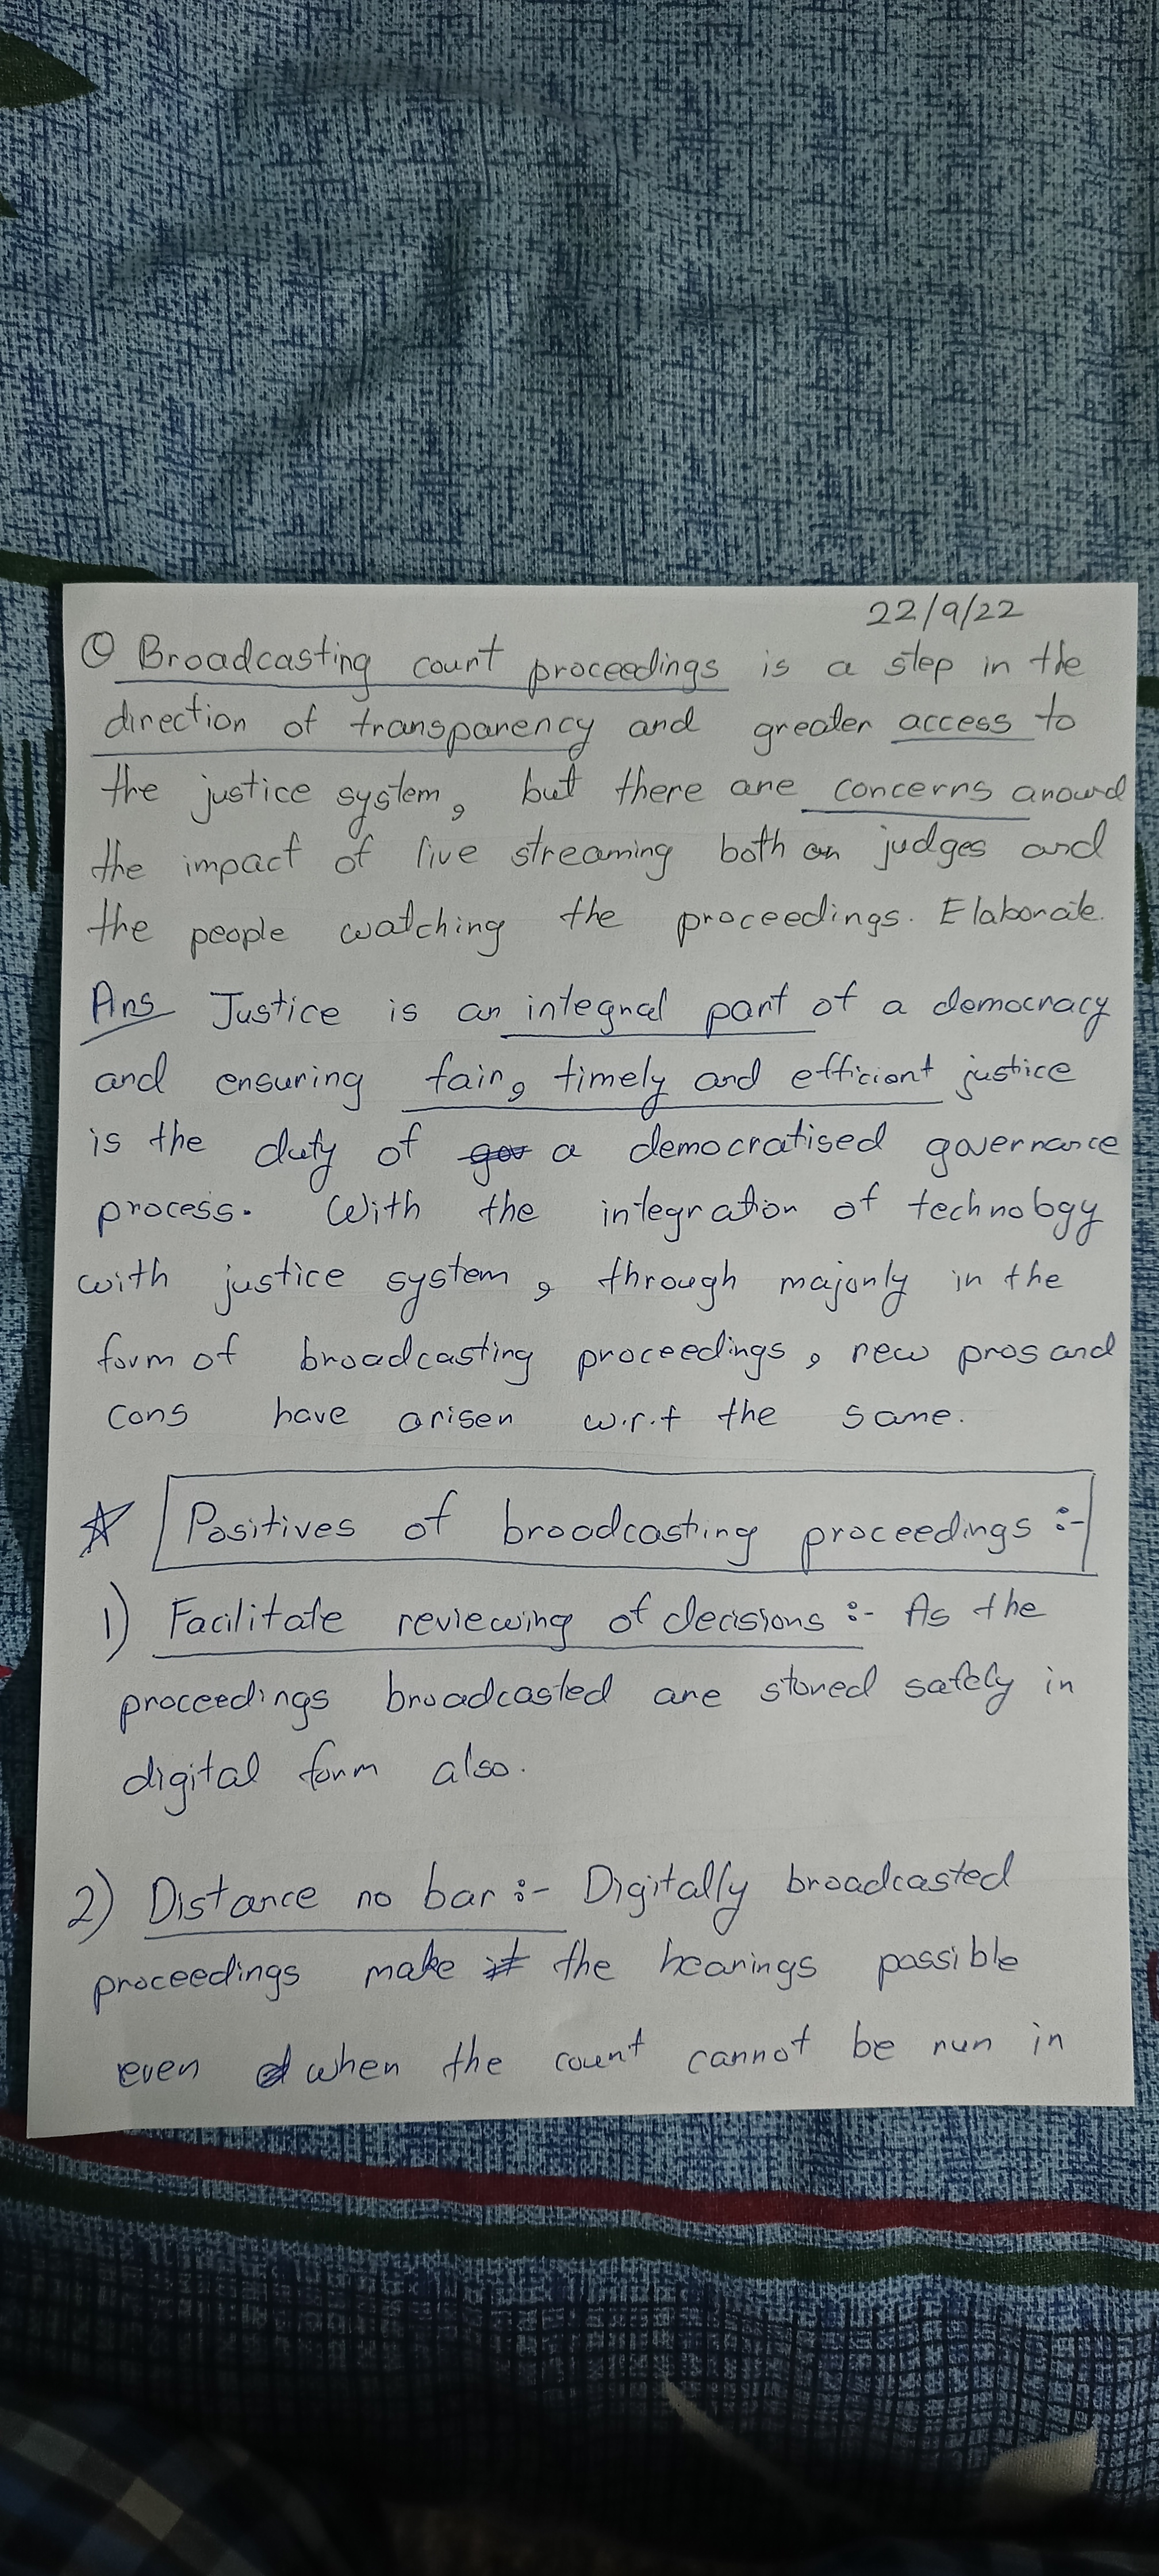 22/9/22
Q Broadcasting court proceedings is a step in the
direction of transparency and greater access to
the justice system, but there are concerns around
the impact of live streaming both on judges and
the people watching the proceedings. Elaborate.
Ans Justice is an integral part of a democracy
and ensuring fair, timely and efficient justice
is the duty of a democratised governance
process. With the integration of technology
with justice system, through majorly in the
form of broadcasting proceedings, new pros and
cons have arisen w.r.t the same.
☆ Positives of broadcasting proceedings :-
1) Facilitate reviewing of decisions :- As the
proceedings broadcasted are stored safely in
digital form also.
2) Distance no bar :- Digitally broadcasted
proceedings make the hearings possible
even when the court cannot be run in